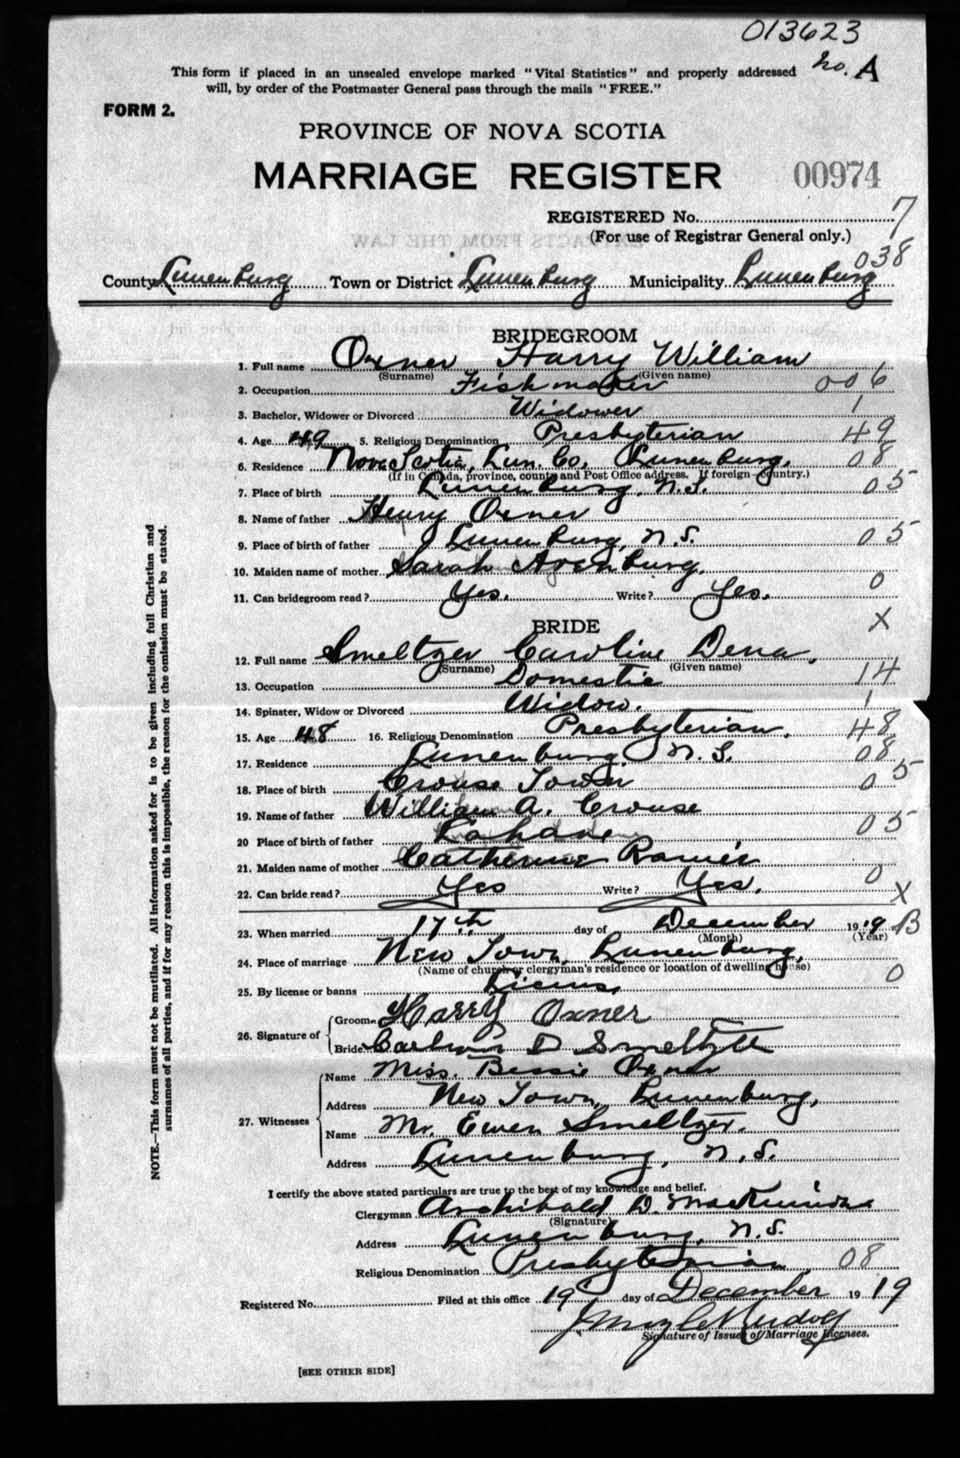 013623
No. A
This form if placed in an unsealed envelope marked "Vital Statistics" and properly addressed
will, by order of the Postmaster General pass through the mails "FREE."
FORM 2.
PROVINCE OF NOVA SCOTIA
MARRIAGE REGISTER 00974
REGISTERED No. 7
(For use of Registrar General only.)
038
County Lunenburg Town or District Lunenburg Municipality Lunenburg
BRIDEGROOM
1. Full name Oxner Harry William
(Surname) (Given name)
2. Occupation Fish maker 006
3. Bachelor, Widower or Divorced Widower 1
4. Age 49 5. Religious Denomination Presbyterian 49
6. Residence Nova Scotia, Lun. Co, Lunenburg. 08
(If in Canada, province, county and Post Office address. If foreign—country.)
7. Place of birth Lunenburg, N.S. 05
8. Name of father Henry Oxner
9. Place of birth of father Lunenburg, N.S. 05
10. Maiden name of mother Sarah Arenburg.
11. Can bridegroom read? Yes. Write? Yes. 0
BRIDE X
12. Full name Smeltzer Caroline Dena.
(Surname) (Given name)
13. Occupation Domestic 14
14. Spinster, Widow or Divorced Widow. 1
15. Age 48 16. Religious Denomination Presbyterian. 48
17. Residence Lunenburg, N.S. 08
18. Place of birth Crouse Town 05
19. Name of father William A. Crouse
20 Place of birth of father Lahave 05
21. Maiden name of mother Catherine
22. Can bride read? Yes Write? Yes. 0
X
23. When married 17th day of December 1919 B
(Month) (Year)
24. Place of marriage New Town, Lunenburg,
(Name of church or clergyman's residence or location of dwelling house)
25. By license or banns Licens. 0
26. Signature of Groom Harry Oxner
Bride D
27. Witnesses
Name Miss. Bessie Oxner
Address New Town, Lunenburg,
Name Mr. Ewen Smeltzer.
Address Lunenburg, N.S.
I certify the above stated particulars are true to the best of my knowledge and belief.
Clergyman Archibald D.
(Signature)
Address Lunenburg, N.S.
Religious Denomination Presbyterian, 08
Registered No. Filed at this office 19 day of December 1919
Signature of Issuer of Marriage Licenses.
[SEE OTHER SIDE]
NOTE.—This form must not be mutilated. All information asked for is to be given including full Christian and
surnames of all parties, and if for any reason this is impossible, the reason for the omission must be stated.